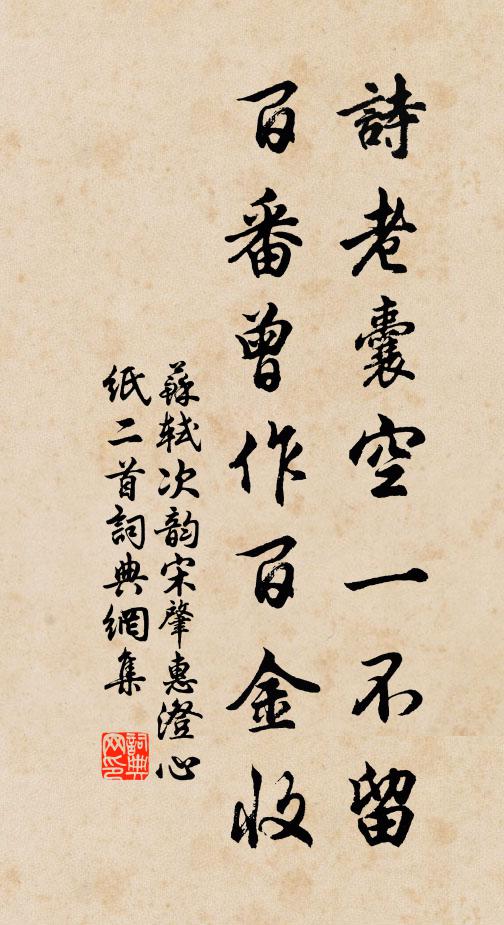 詩老囊空一不留
百番曾作百金收
蘇軾次韵宋肇惠澄心
紙二首詞典網集
詞典
网印